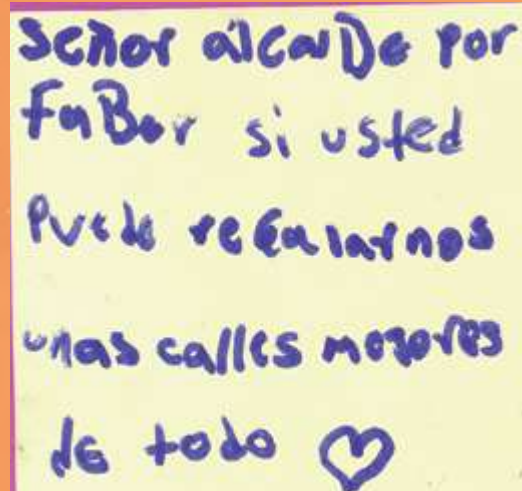 Señor alcalDe por
FaBor si usted
Puede reGalarnos
unas calles mejores
de todo ♡